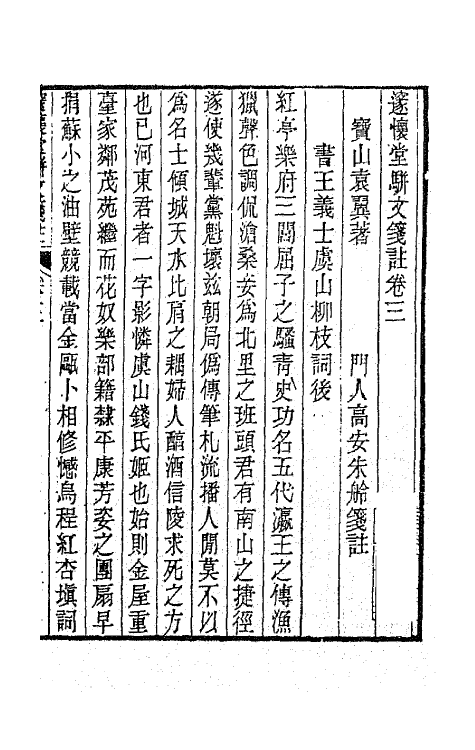 邃懷堂駢文箋註卷三
寶山袁翼著　門人高安朱舲箋註
書王義士虞山柳枝詞後
紅亭樂府三閭屈子之騷靑史功名五代瀛王之傳漁
獵聲色調侃滄桑妄爲北里之班頭君有南山之捷徑
遂使幾輩黨魁壞兹朝局僞傳筆札流播人閒莫不以
爲名士傾城天水比肩之耦婦人醕酒信陵求死之方
也已河東君者一字影憐虞山錢氏姬也始則金屋重
臺家鄰茂苑繼而花奴樂部籍隸平康芳姿之團扇早
捐蘇小之油壁競載當金甌卜相修憾烏程紅杏塡詞